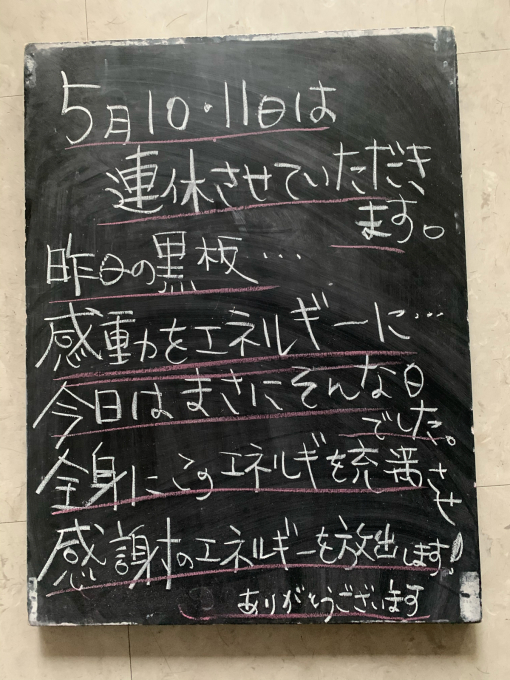 5月10・11日は
連休させていただき
ます。
昨日の黒板…
感動をエネルギーに…
今日はまさにそんな日
でした。
全身にこのエネルギを充満させ
感謝のエネルギーを放出します!
ありがとうございます